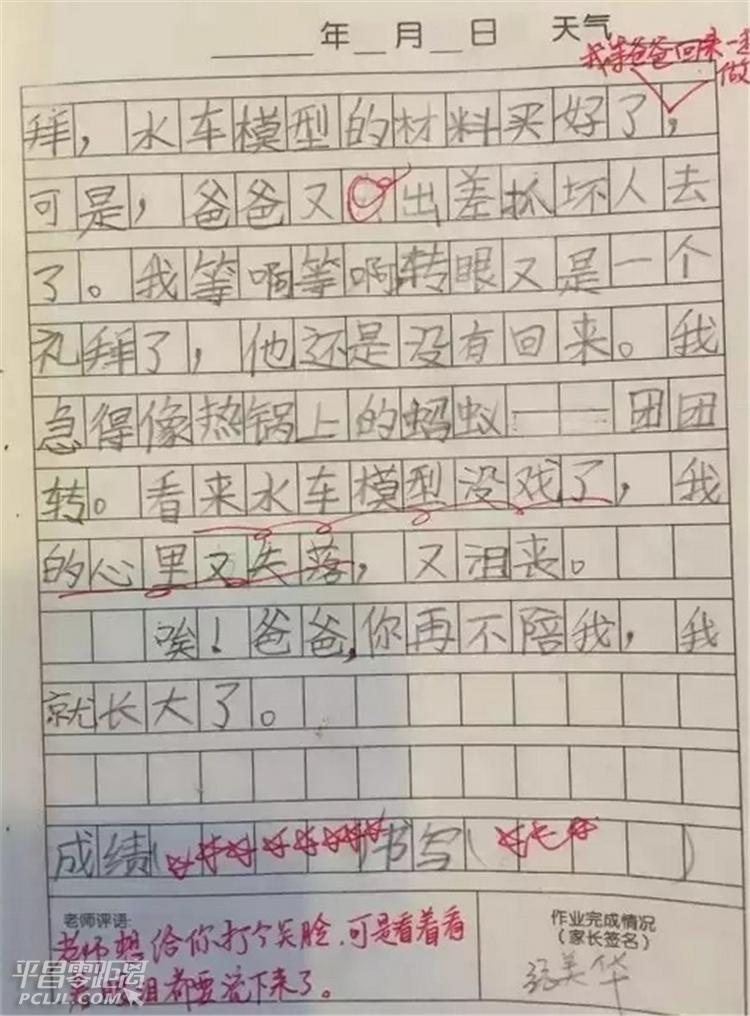 年 月 日 天气
我等爸爸回来一起做
拜，水车模型的材料买好了，
可是，爸爸又出差抓坏人去
了。我等啊等啊转眼又是一个
礼拜了，他还是没有回来。我
急得像热锅上的蚂蚁——团团
转。看来水车模型没戏了，我
的心里又失落，又沮丧。
唉！爸爸，你再不陪我，我
就长大了。
成绩( 书写( )
老师评语:
老师想给你打个笑脸，可是看着看
泪都要流下来了。
作业完成情况
（家长签名）
张美华
平昌零距离
PCLJL.COM